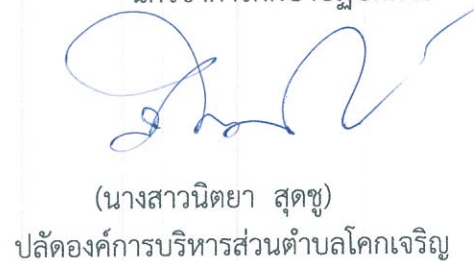 (นางสาวนิตยา สุดชู)
ปลัดองค์การบริหารส่วนตำบลโคกเจริญ